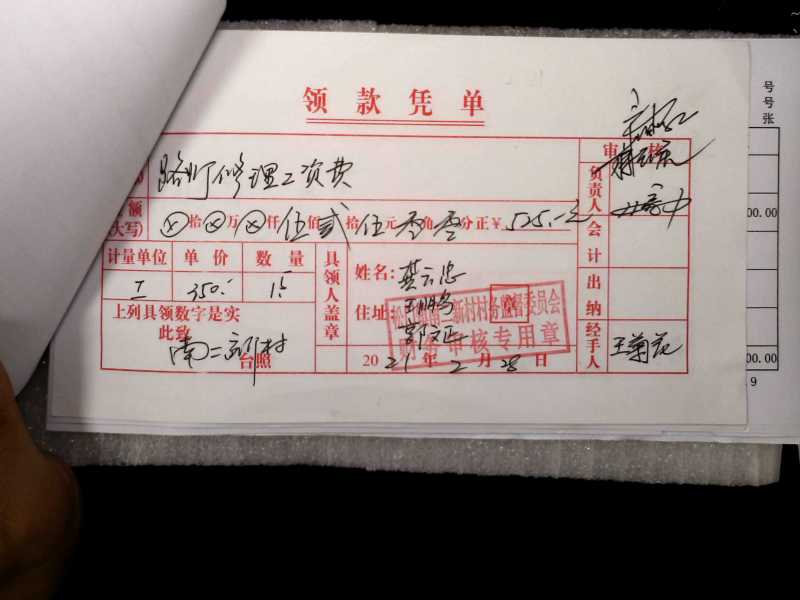 领款凭单
审核
路灯修理工资费
负责人
额
(大写) ⊗拾⊗万⊗仟伍佰贰拾伍元零角零分正¥525.-元
会计
计量单位 单价 数量
工 350.- 1.5
上列具领数字是实
此致
南二新村
台照
具领人盖章
姓名:
住址:
新村村务监督委员会
财务审核专用章
2021年2月28日
出纳
经手人
王菊花
号
号
张
00.00
00.00
9